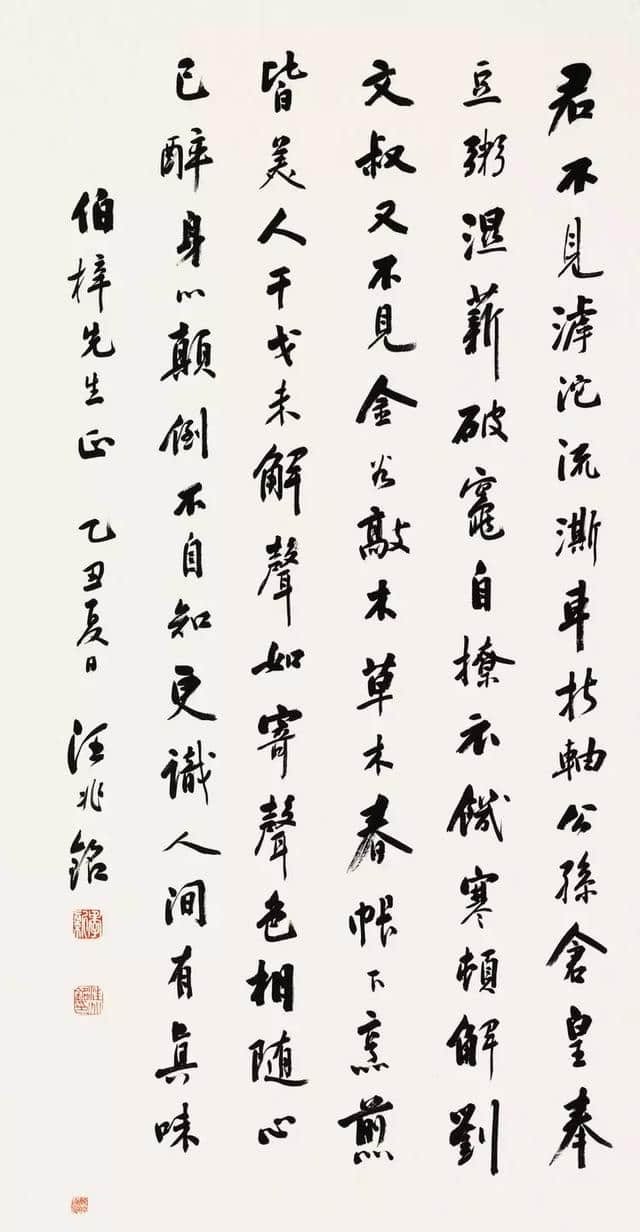 君不見滹沱流澌車折軸公孫倉皇奉
豆粥濕薪破竈自撩衣饑寒頓解劉
文叔又不見金谷敲木草木春帳下烹煎
皆美人干戈未解聲如寄聲色相随心
已醉身心顛倒不自知更識人間有眞味
伯梓先生正 乙丑夏日 汪兆銘